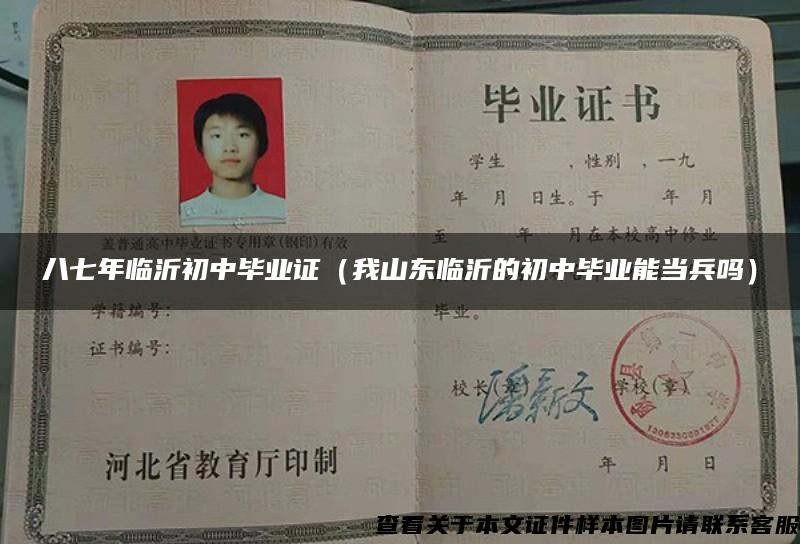 毕业证书
学生 ,性别 ,一九
年 月 日生。于 年 月
至 年 月在本校高中修业
盖普通高中毕业证书专用章(钢印)有效
八七年临沂初中毕业证（我山东临沂的初中毕业能当兵吗）
毕业。
学籍编号：
证书编号：
校长(章) 学校(章)
潘新文
县第一中
河北省教育厅印制
年 月 日
查看关于本文证件样本图片请联系客服